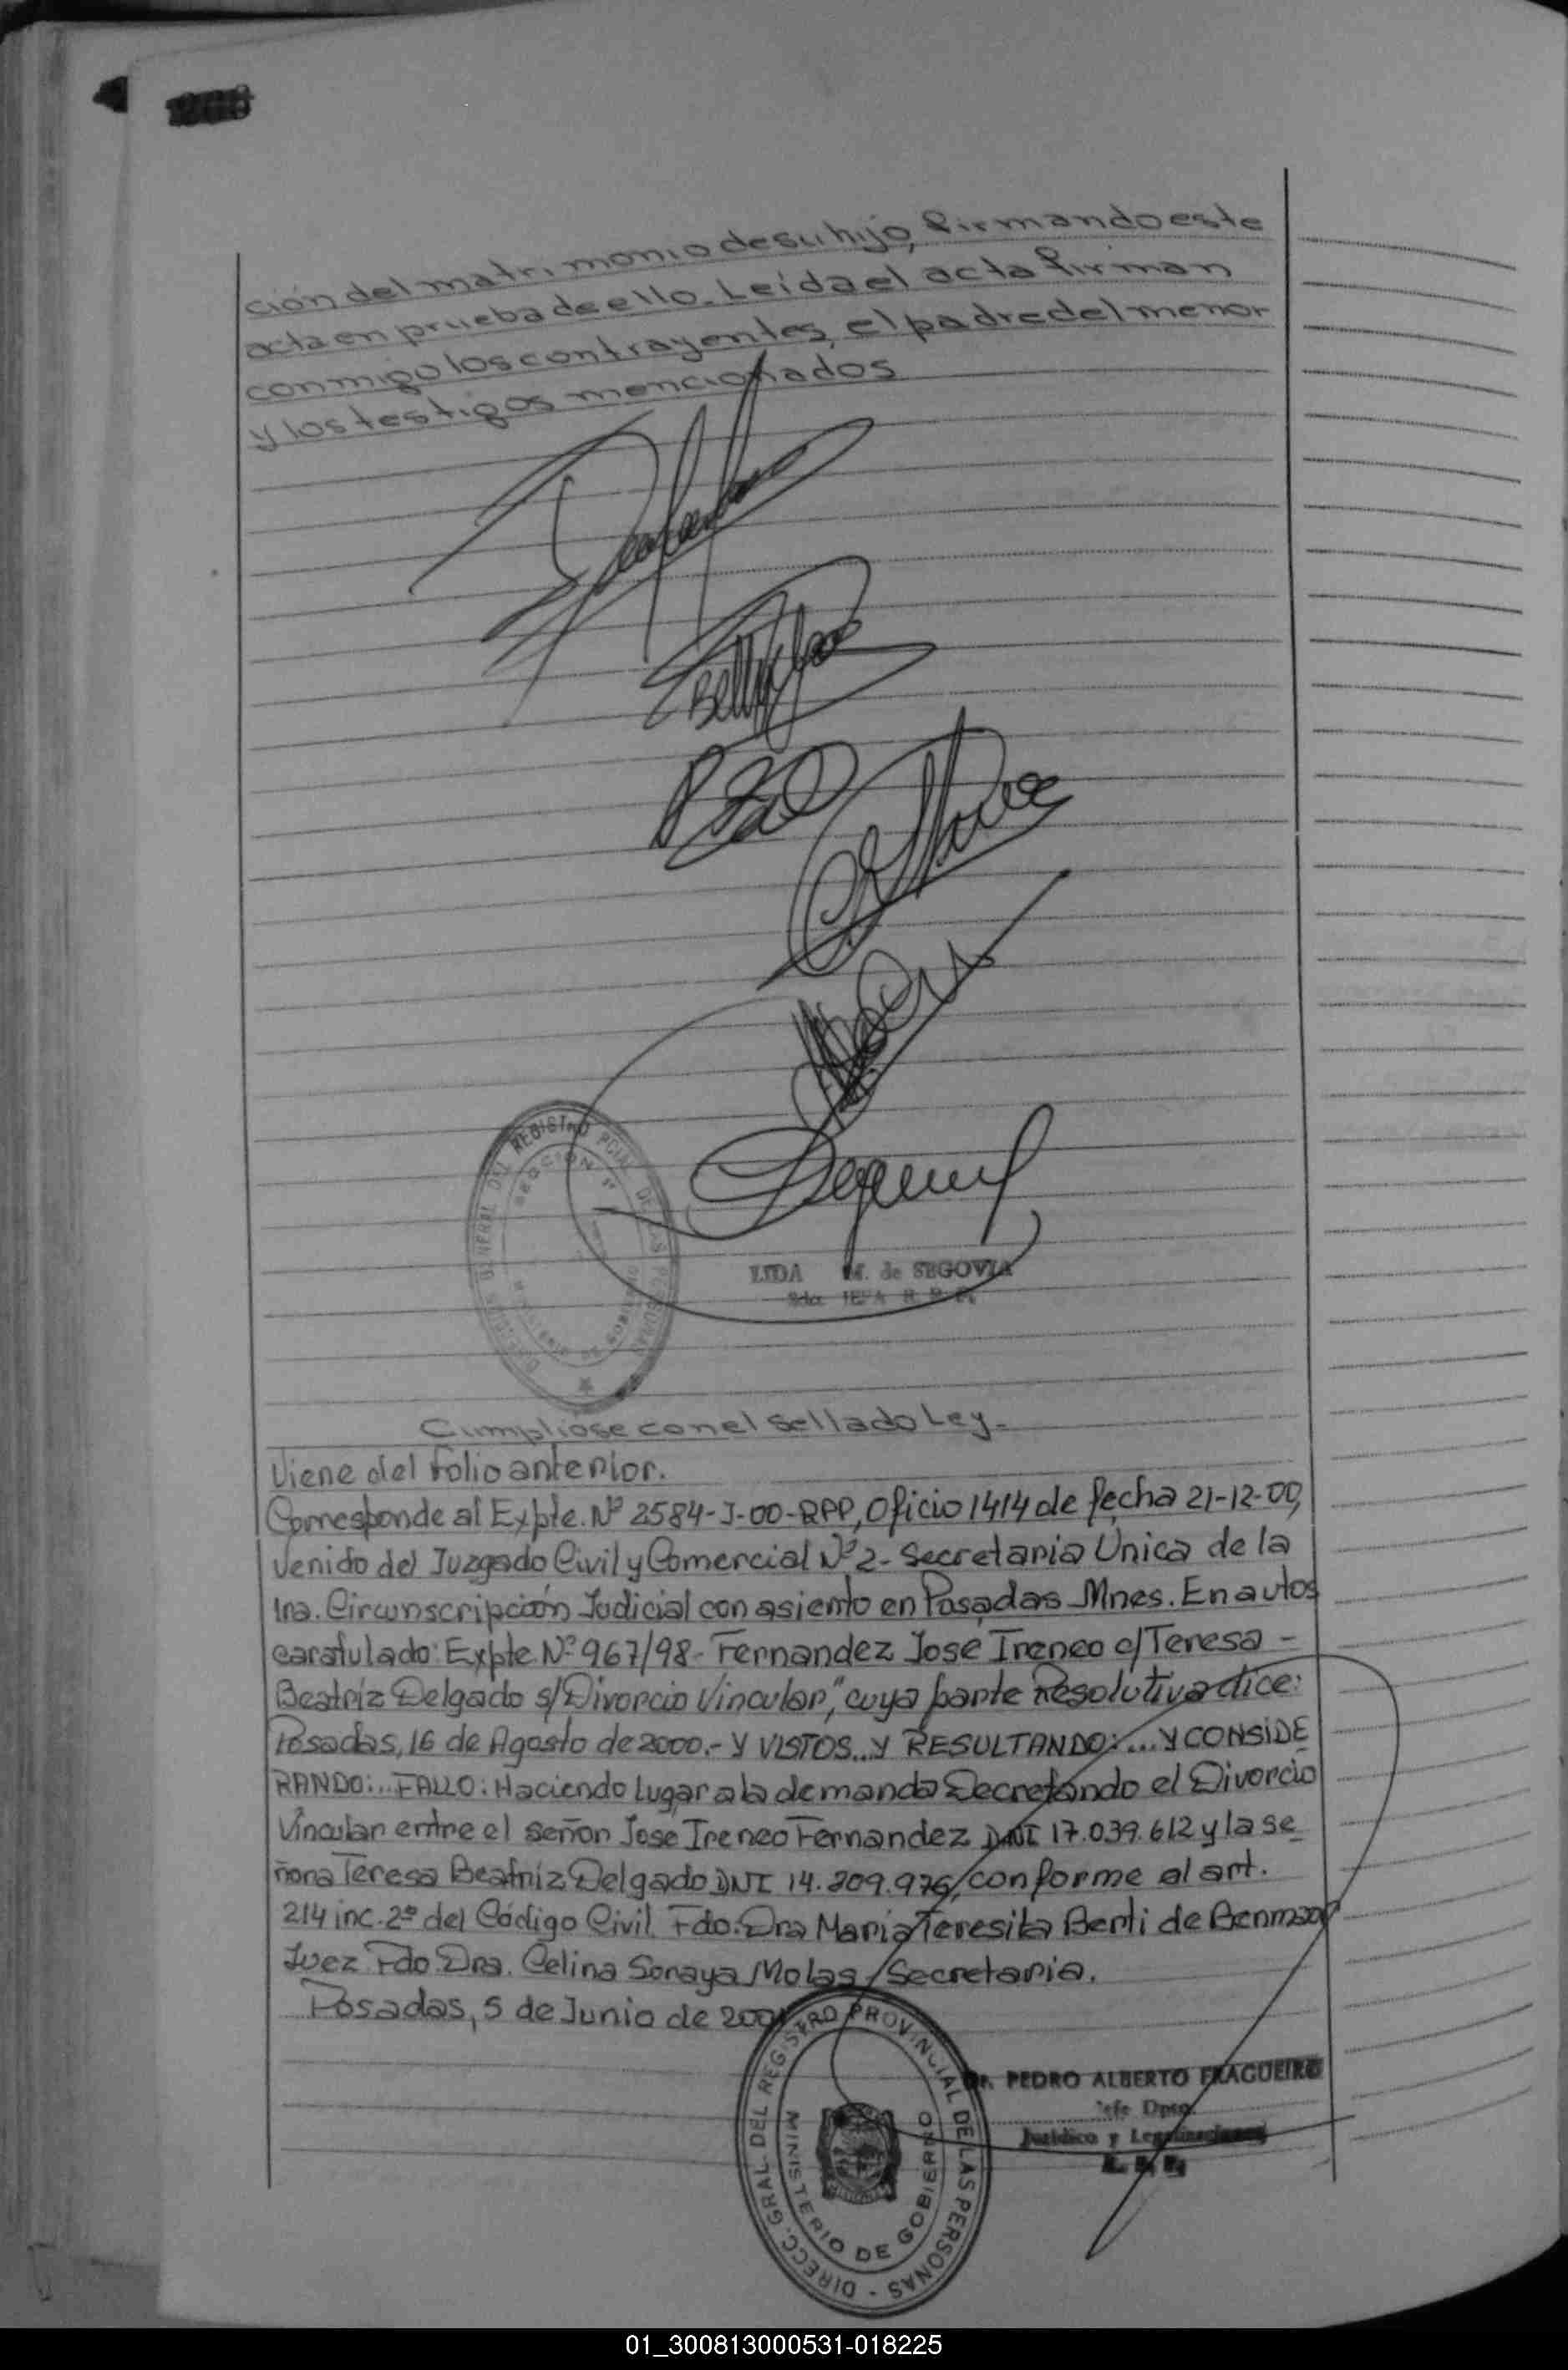 ción del matrimonio de su hijo, firmando este
acta en prueba de ello. Leída el acta firman
conmigo los contrayentes, el padre del menor
y los testigos mencionados
DIRECCION GENERAL DEL REGISTRO PCIAL DE LAS PERSONAS
SECCION 1ª
MINISTERIO DE GOBIERNO
LIDA M. de SEGOVIA
JEFA R. P. P.
Cumpliose con el sellado Ley.-
Viene del folio anterior.
Corresponde al Expte. Nº 2584-J-00-RPP, Oficio 1414 de fecha 21-12-00,
venido del Juzgado Civil y Comercial Nº 2- Secretaria Única de la
1ra. Circunscripción Judicial con asiento en Posadas Mnes. En autos
caratulado: Expte Nº 967/98- Fernandez José Ireneo c/ Teresa -
Beatríz Delgado s/ Divorcio Vincular," cuya parte Resolutiva dice:
Posadas, 16 de Agosto de 2000.- Y VISTOS... Y RESULTANDO:... Y CONSIDE
RANDO:... FALLO: Haciendo lugar a la demanda Decretando el Divorcio
Vincular entre el señor Jose Ireneo Fernandez DNI 17.039.612 y la se
ñora Teresa Beatríz Delgado DNI 14.209.976, conforme al art.
214 inc. 2º del Código Civil. Fdo. Dra Maria Teresita Berti de Benmaor
Juez Fdo. Dra. Celina Soraya Molas, Secretaria.
Posadas, 5 de Junio de 2001
DIRECC. GRAL. DEL REGISTRO PROVINCIAL DE LAS PERSONAS -
MINISTERIO DE GOBIERNO
Dr. PEDRO ALBERTO FRAGUEIRO
Jefe Dpto.
Jurídico y Legalizaciones
R. P. P.
01_300813000531-018225